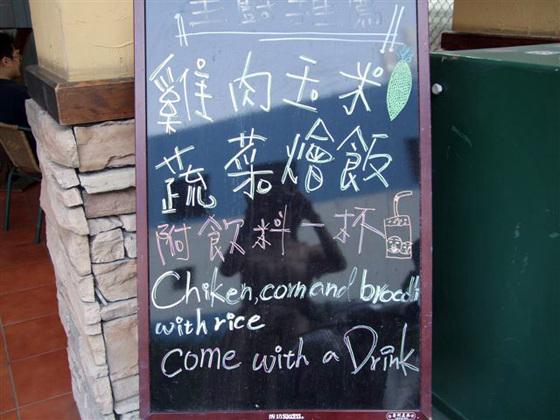 雞肉玉米
蔬菜燴飯
附飲料一杯
Chiken, corn and brocoli
with rice
Come with a Drink
SUCCESS